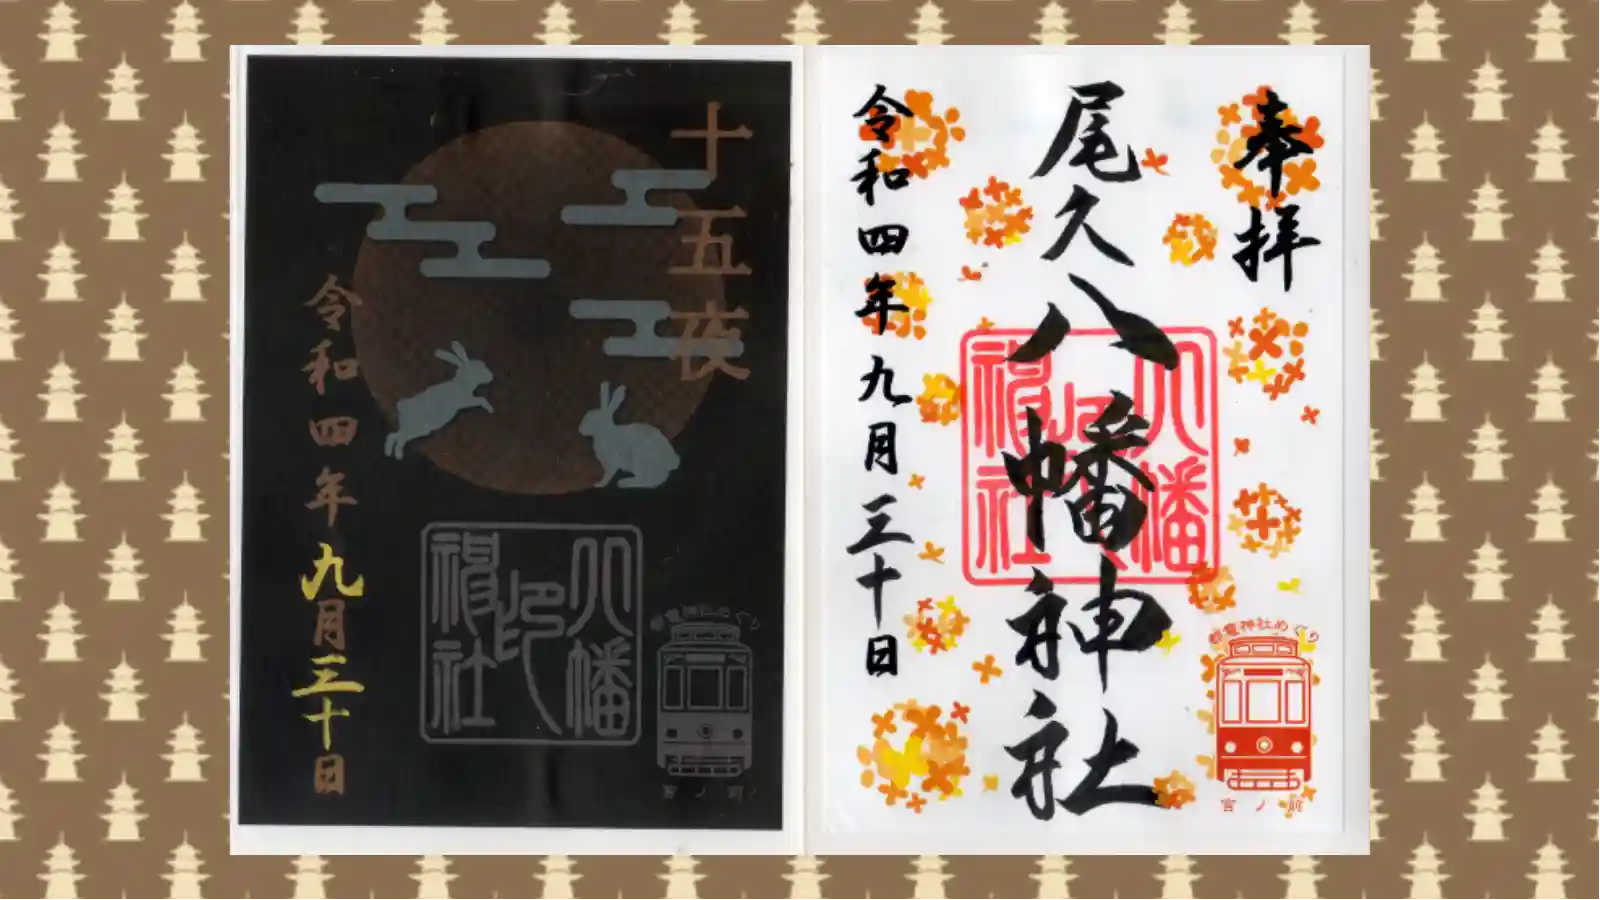 十五夜
令和四年九月三十日
八幡
印
神社
都電神社めぐり
宮ノ前
奉拝
尾久八幡神社
令和四年九月三十日
八幡
印
神社
都電神社めぐり
宮ノ前